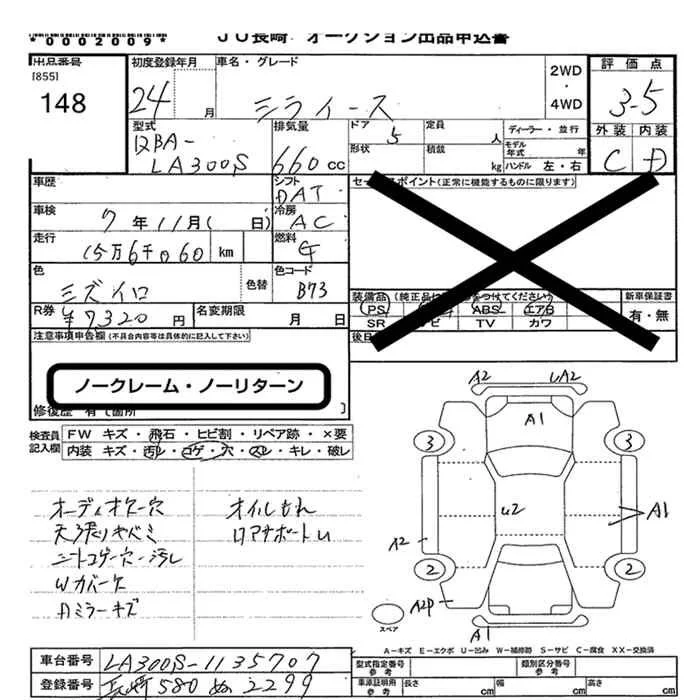 *0002009* JU長崎 オークション出品申込書
出品番号 初度登録年月 車名・グレード 2WD 評価点
[855]
148 24 月 ミライース ・ 4WD 3.5
型式 排気量 ドア 5 定員 人 ディーラー・並行 外装 内装
DBA-
LA300S 660 cc 形状 積載 kg モデル年式 年 ハンドル 左・右 C D
車歴 シフト DAT セールスポイント(正常に機能するものに限ります)
車検 7年 11月( 日) 冷房 AC
走行 15万6千060 km 燃料 G
色 ミズイロ 色替 色コード B73 装備品 新車保証書
R券 ¥7320円 名変期限 月 日 PS ABS エアB 有・無
SR ナビ TV カワ
注意事項申告欄(不具合内容等は具体的に記入して下さい) 後日
ノークレーム・ノーリターン
修復歴 有(箇所 )
検査員 FW キズ・飛石・ヒビ割・リペア跡・×要
記入欄 内装 キズ・汚レ・コゲ・穴・スレ・キレ・破レ
オーディオカバー穴 オイルもれ
天張りヤベミ ロアナポートレ
シートコゲ穴・汚レ
Wカバーケ
Dミラーキズ
A2 UA2
A1
3 3
U2 A1
A2
2 2
A2P
スペア A1
A-キズ E-エクボ U-凹み W-補修跡 S-サビ C-腐食 XX-交換済
車台番号 LA300S-1135707 型式指定番号 参考 類別区分番号 参考
登録番号 長崎 580 ぬ 2299 車庫証明用 参考 長さ cm 幅 cm 高さ cm